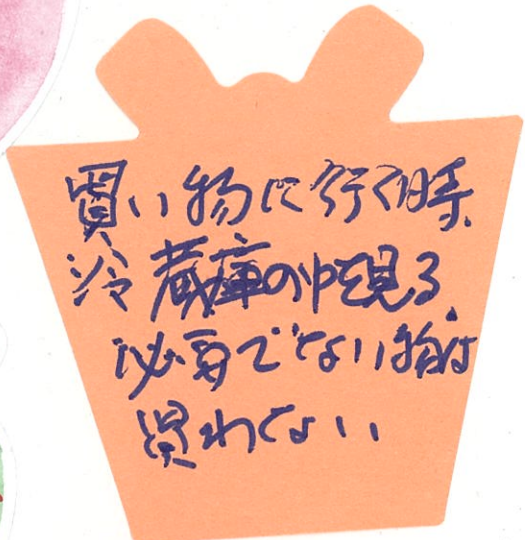 買い物に行く時
冷蔵庫の中を見る
必要でない物は
買わない